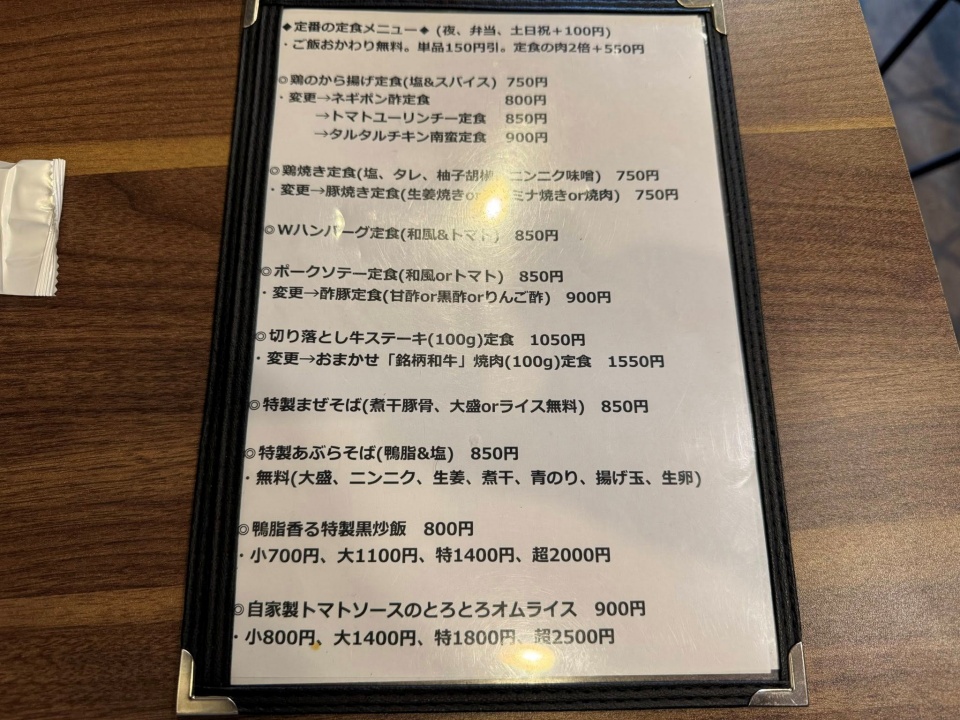 ◆定番の定食メニュー◆ (夜、弁当、土日祝＋100円)
・ご飯おかわり無料。単品150円引。定食の肉2倍＋550円
◎鶏のから揚げ定食(塩&スパイス) 750円
・変更→ネギポン酢定食 800円
→トマトユーリンチー定食 850円
→タルタルチキン南蛮定食 900円
◎鶏焼き定食(塩、タレ、柚子胡椒、ニンニク味噌) 750円
・変更→豚焼き定食(生姜焼きor ミナ焼きor焼肉) 750円
◎Wハンバーグ定食(和風&トマト) 850円
◎ポークソテー定食(和風orトマト) 850円
・変更→酢豚定食(甘酢or黒酢orりんご酢) 900円
◎切り落とし牛ステーキ(100g)定食 1050円
・変更→おまかせ「銘柄和牛」焼肉(100g)定食 1550円
◎特製まぜそば(煮干豚骨、大盛orライス無料) 850円
◎特製あぶらそば(鴨脂&塩) 850円
・無料(大盛、ニンニク、生姜、煮干、青のり、揚げ玉、生卵)
◎鴨脂香る特製黒炒飯 800円
・小700円、大1100円、特1400円、超2000円
◎自家製トマトソースのとろとろオムライス 900円
・小800円、大1400円、特1800円、超2500円